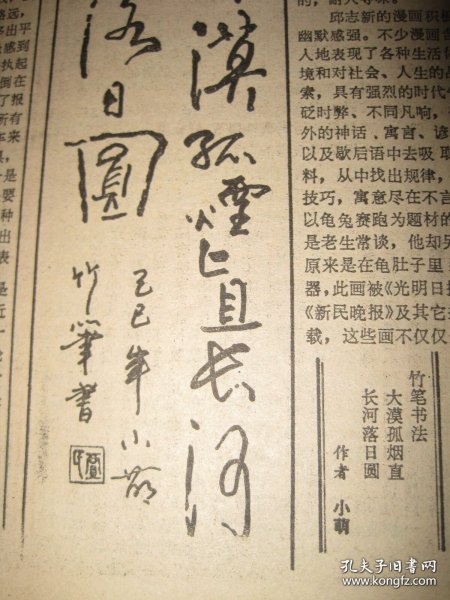 邱志新的漫画积极
幽默感强。不少漫画含
人地表现了各种生活
境和对社会、人生的
索，具有强烈的时代
砭时弊、不同凡响，
外的神话、寓言、谚
以及歇后语中去吸取
料，从中找出规律，
技巧，寓意尽在不言
以龟兔赛跑为题材的
是老生常谈，他却另
原来是在龟肚子里
器，此画被《光明日报
《新民晚报》及其它
载，这些画不仅仅
漠孤煙直长河
落日圆
己巳年小萌
竹筆書
竹笔书法
大漠孤烟直
长河落日圆
作者 小萌
多出平
感到
执起
倒在
了报
所有
年来
要
种
出
表
是
近
孔夫子旧书网
www.kongfz.com